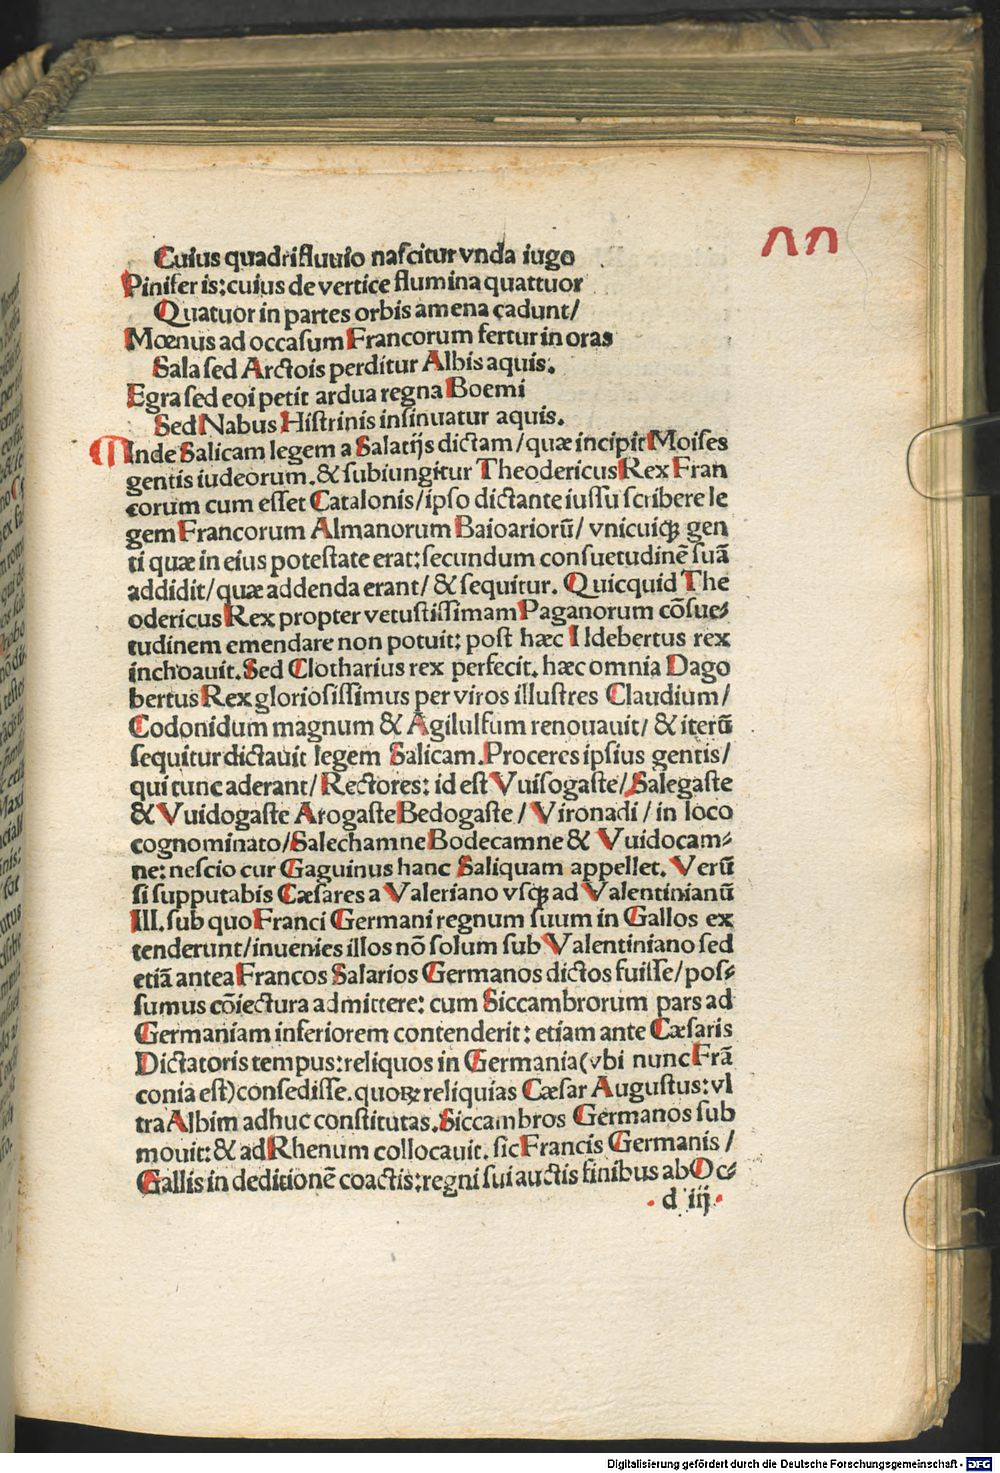 Cuius quadrifluuio naſcitur vnda iugo
Piniferis:cuius de vertice flumina quattuor
Quatuor in partes orbis amena cadunt/
Mœnus ad occaſum Francorum fertur in oras
Sala ſed Arctois perditur Albis aquis.
Egra ſed eoi petit ardua regna Boemi
Sed Nabus Hiſtrinis inſinuatur aquis.
Inde Salicam legem a Salatijs dictam/quæ incipit Moiſes
gentis iudeorum.& ſubiungitur Theodericus Rex Fran
corum cum eſſet Catalonis/ipſo dictante iuſſu ſcribere le
gem Francorum Almanorum Baioariorū/ vnicuiqꝫ gen
ti quæ in eius poteſtate erat:ſecundum conſuetudinē ſuā
addidit/quæ addenda erant/ & ſequitur. Quicquid The
odericus Rex propter vetuſtiſſimam Paganorum cōſue⸗
tudinem emendare non potuit: poſt hæc Ildebertus rex
inchoauit.Sed Clotharius rex perfecit.hæc omnia Dago
bertus Rex glorioſiſſimus per viros illuſtres Claudium/
Codonidum magnum & Agilulfum renouauit/ & iterū
ſequitur dictauit legem Salicam.Proceres ipſius gentis/
qui tunc aderant/ Rectores: id eſt Vuiſogaſte/Salegaſte
& Vuidogaſte Arogaſte Bedogaſte / Vironadi / in loco
cognominato/Salechamne Bodecamne & Vuidocam⸗
ne: neſcio cur Gaguinus hanc Saliquam appellet. Verū
ſi ſupputabis Cæſares a Valeriano vſqꝫ ad Valentinianū
III.ſub quo Franci Germani regnum ſuum in Gallos ex
tenderunt/inuenies illos nō ſolum ſub Valentiniano ſed
etiā antea Francos Salarios Germanos dictos fuiſſe/poſ⸗
ſumus cōiectura admittere: cum Siccambrorum pars ad
Germaniam inferiorem contenderit: etiam ante Cæſaris
Dictatoris tempus:reliquos in Germania(vbi nunc Frā
conia eſt)conſediſſe.quoꝝ reliquias Cæſar Auguſtus:vl
tra Albim adhuc conſtitutas.Siccambros Germanos ſub
mouit:& ad Rhenum collocauit.ſic Francis Germanis /
Gallis in deditionē coactis:regni ſui auctis finibus ab Oc⸗
d iij
Digitalisierung gefördert durch die Deutsche Forschungsgemeinschaft - DFG